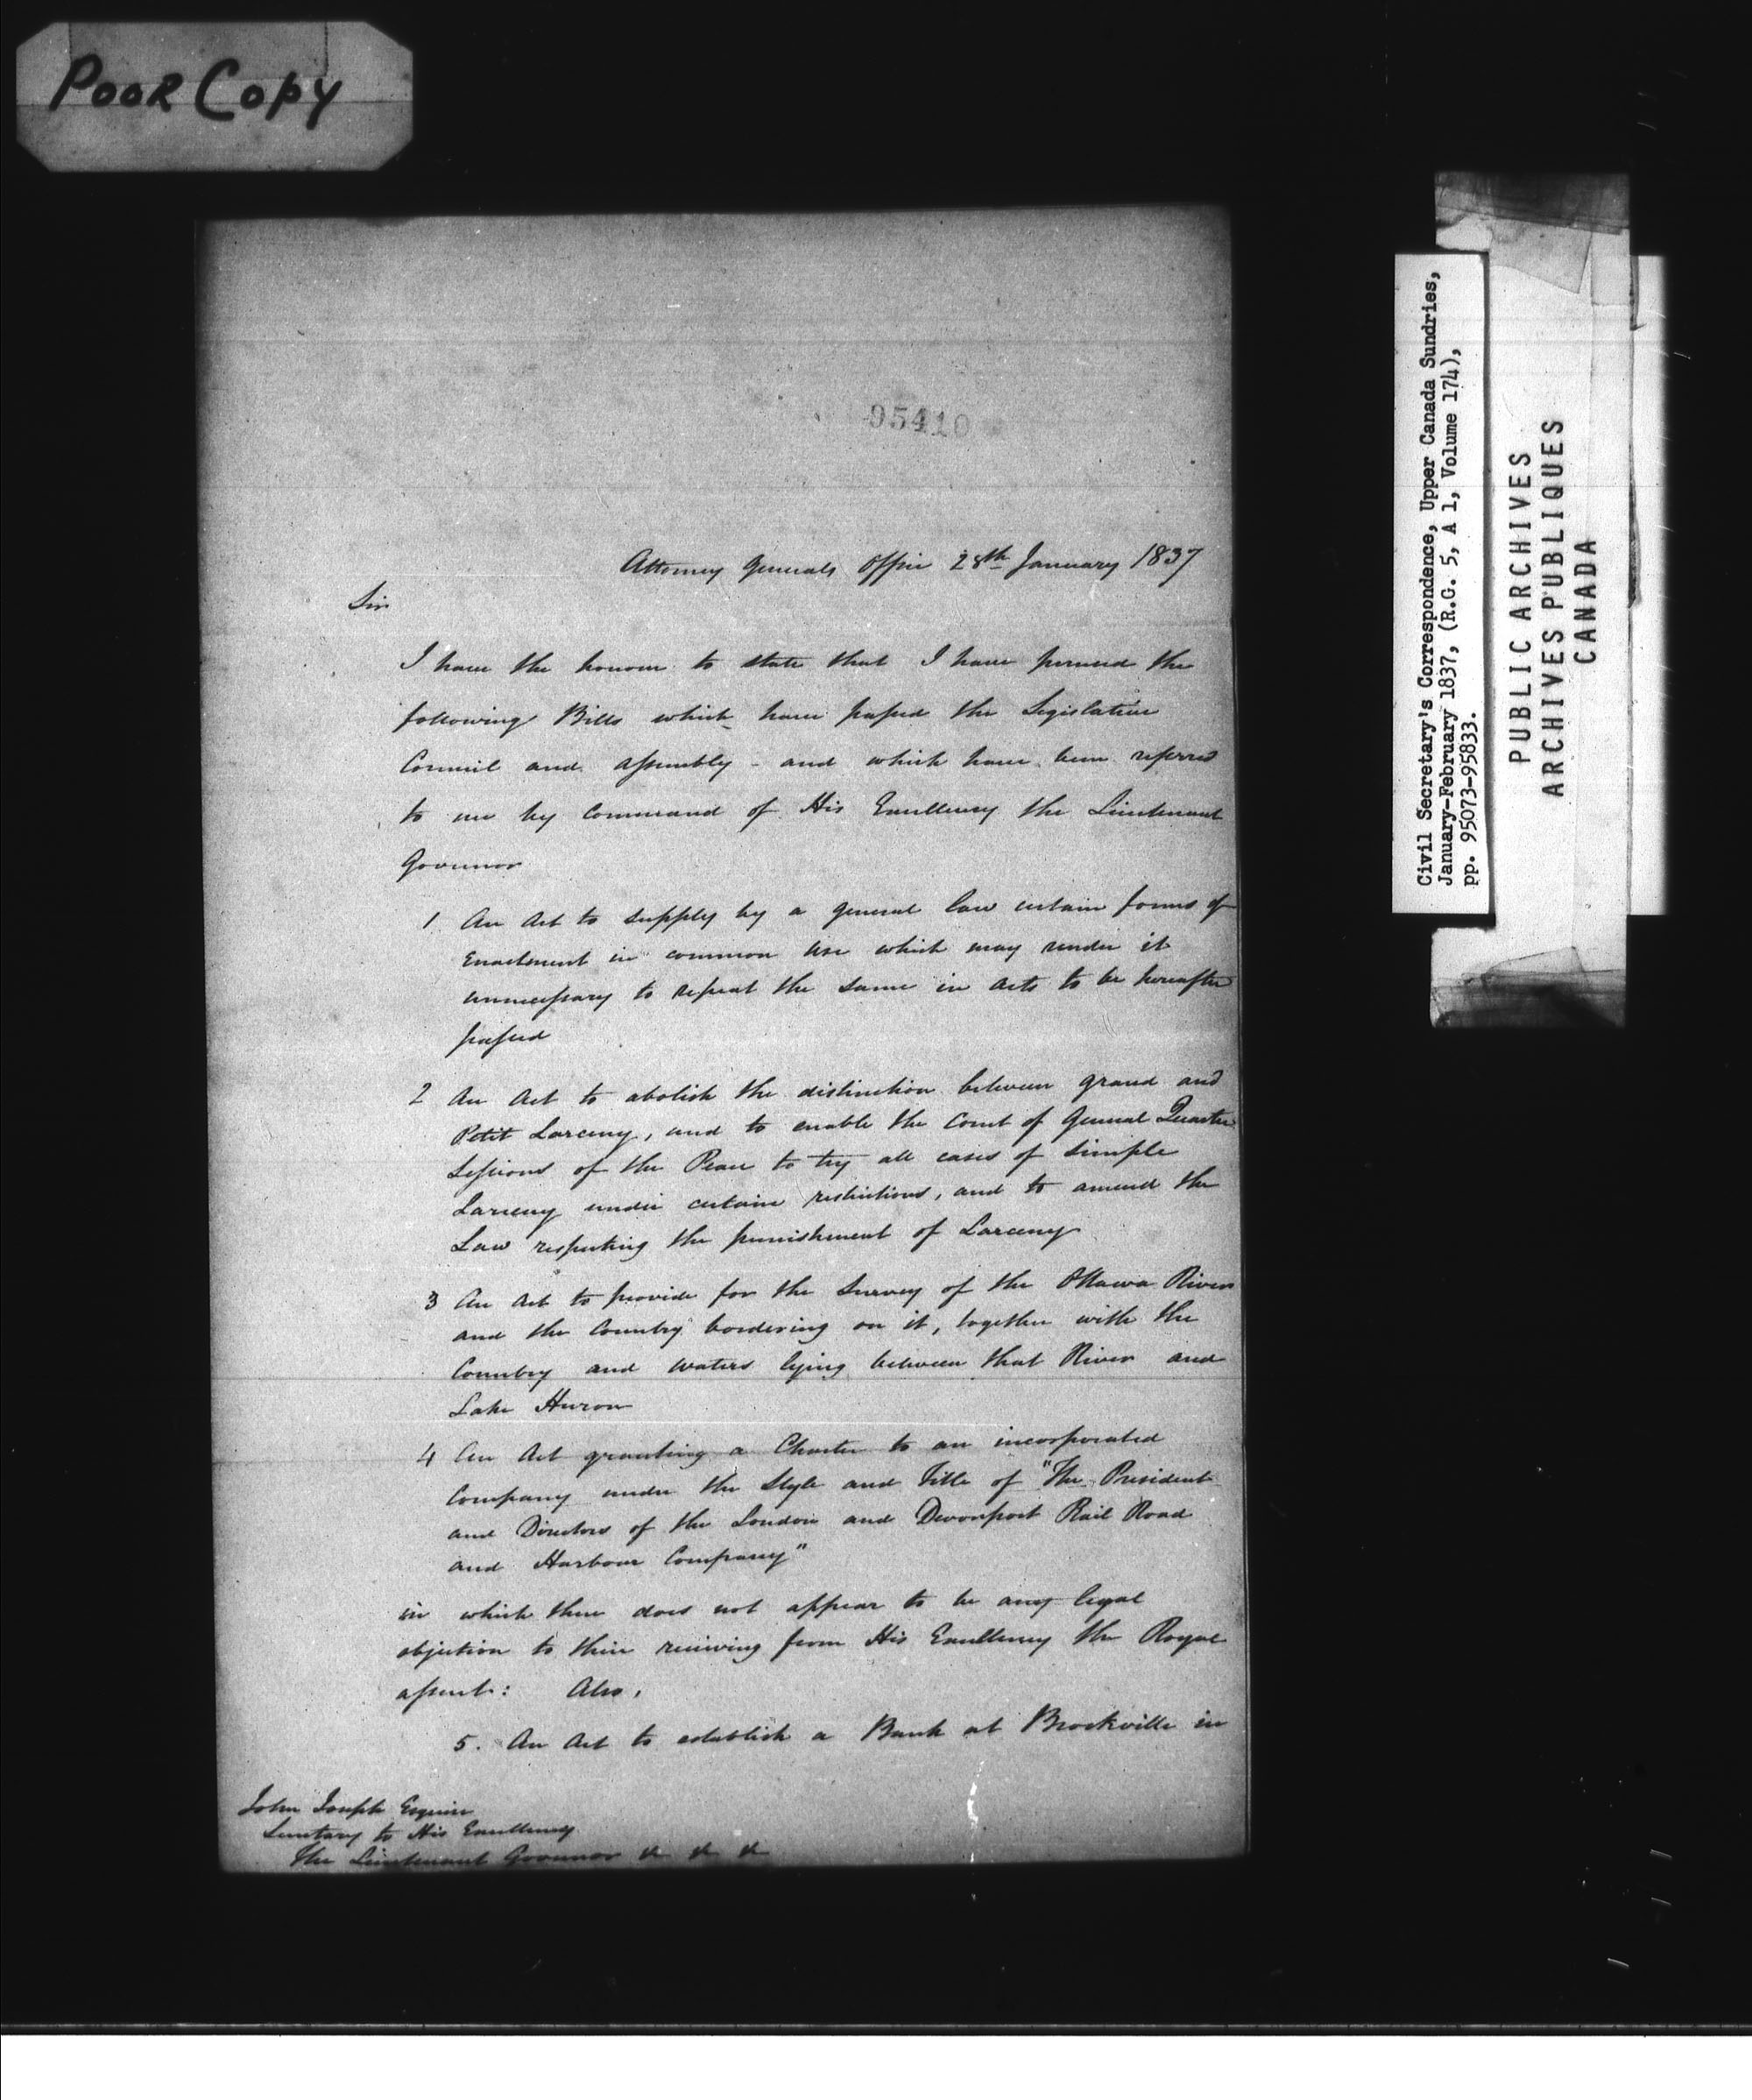 Poor Copy
95410
Attorney Generals Office 28th January 1837
Sir
I have the honour to state that I have perused the
following Bills which have passed the Legislative
Council and Assembly - and which have been referred
to me by Command of His Excellency the Lieutenant
Governor
1 An Act to supply by a general law certain forms of
Enactment in common use which may render it
unnecessary to repeat the same in Acts to be hereafter
passed
2 An Act to abolish the distinction between grand and
Petit Larceny, and to enable the Court of General Quarter
Sessions of the Peace to try all cases of simple
Larceny under certain restrictions, and to amend the
Law respecting the punishment of Larceny
3 An Act to provide for the Survey of the Ottawa River
and the Country bordering on it, together with the
Country and waters lying between that River and
Lake Huron
4 An Act granting a Charter to an incorporated
Company under the Style and Title of "The President
and Directors of the London and Devonport Rail Road
and Harbour Company"
in which there does not appear to be any legal
objection to their receiving from His Excellency the Royal
assent: Also,
5. An Act to establish a Bank at Brockville in
John Joseph Esquire
Secretary to His Excellency
The Lieutenant Governor &c &c &c
Civil Secretary's Correspondence, Upper Canada Sundries,
January-February 1837, (R.G. 5, A 1, Volume 174),
pp. 95073-95833.
PUBLIC ARCHIVES
ARCHIVES PUBLIQUES
CANADA